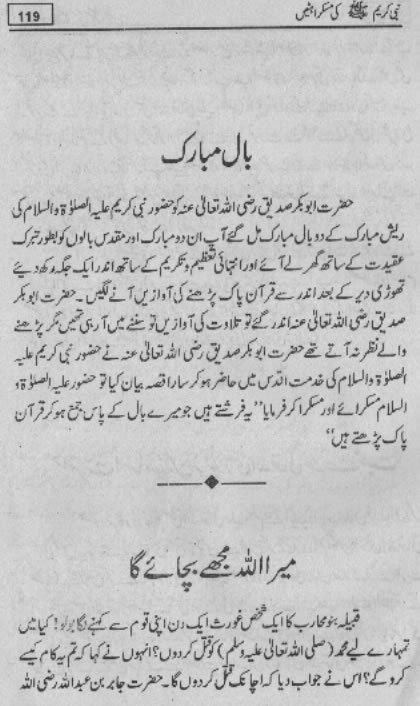 نبی کریم ﷺ کی مسکراہٹیں
119
بال مبارک
حضرت ابوبکر صدیق رضی اللہ تعالیٰ عنہ کو حضور نبی کریم علیہ الصلوٰۃ والسلام کی
ریش مبارک کے دو بال مبارک مل گئے آپ ان دو مبارک اور مقدس بالوں کو بطور تبرک
عقیدت کے ساتھ گھر لے آئے اور انتہائی تعظیم و تکریم کے ساتھ اندر ایک جگہ رکھ دیئے
تھوڑی دیر کے بعد اندر سے قرآن پاک پڑھنے کی آوازیں آنے لگیں۔ حضرت ابوبکر
صدیق رضی اللہ تعالیٰ عنہ اندر گئے تو تلاوت کی آوازیں تو سننے میں آ رہی تھیں مگر پڑھنے
والے نظر نہ آتے تھے حضرت ابوبکر صدیق رضی اللہ تعالیٰ عنہ نے حضور نبی کریم علیہ
الصلوٰۃ والسلام کی خدمت اقدس میں حاضر ہو کر سارا قصہ بیان کیا تو حضور علیہ الصلوٰۃ و
السلام مسکرائے اور مسکرا کر فرمایا ”یہ فرشتے ہیں جو میرے بال کے پاس جمع ہو کر قرآن
پاک پڑھتے ہیں“
میرا اللہ مجھے بچائے گا
قبیلہ بنو محارب کا ایک شخص غورث ایک دن اپنی قوم سے کہنے لگا بولو! کیا میں
تمہارے لیے محمد (صلی اللہ تعالیٰ علیہ وسلم) کو قتل کر دوں؟ انہوں نے کہا کہ تم یہ کام کیسے
کرو گے؟ اس نے جواب دیا کہ اچانک قتل کر دوں گا۔ حضرت جابر بن عبداللہ رضی اللہ